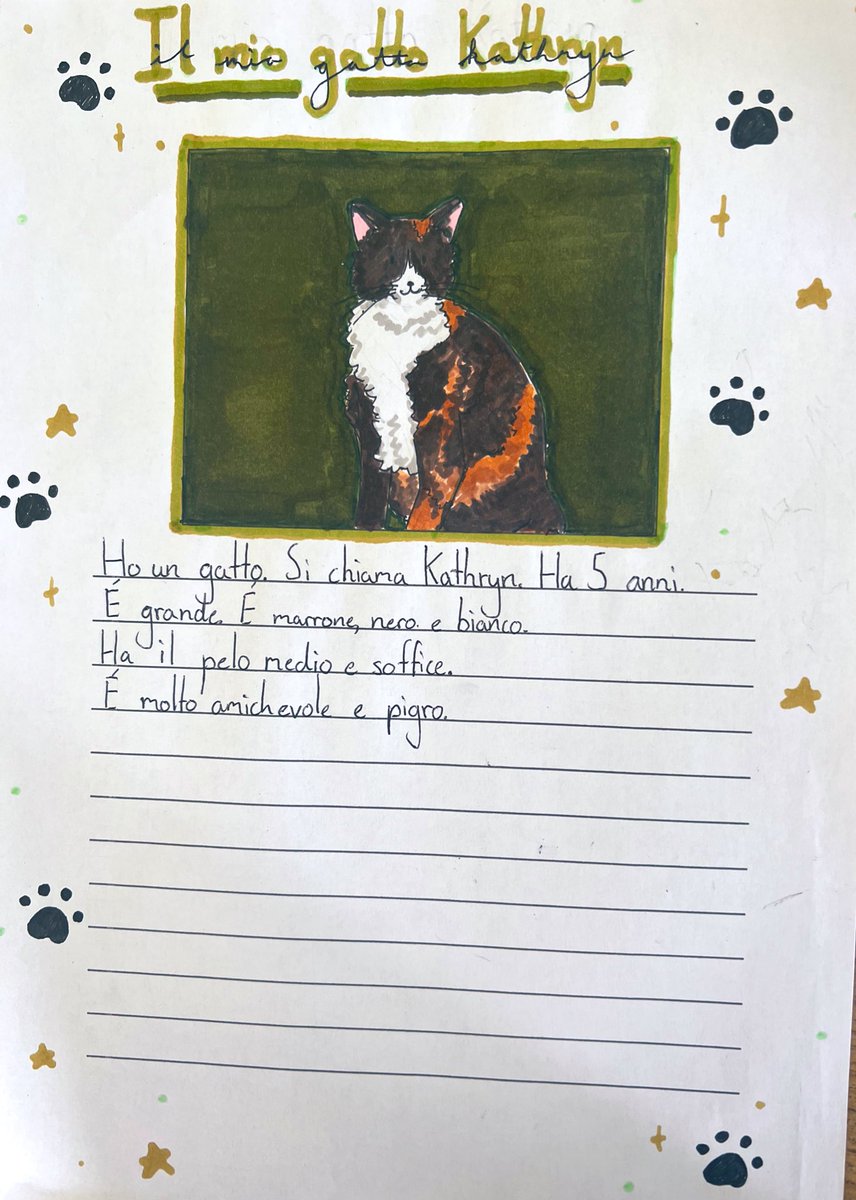 Il mio gatto Kathryn
Ho un gatto. Si chiama Kathryn. Ha 5 anni.
É grande. É marrone, nero. e bianco.
Ha il pelo medio e soffice.
É molto amichevole e pigro.